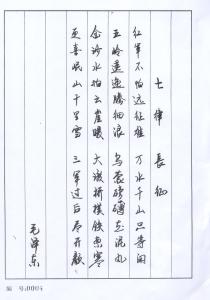 七律 長征
红军不怕远征难 万水千山只等闲
五岭逶迤腾细浪 乌蒙磅礴走泥丸
金沙水拍云崖暖 大渡桥横铁索寒
更喜岷山千里雪 三军过后尽开颜
毛泽东
编号:0004